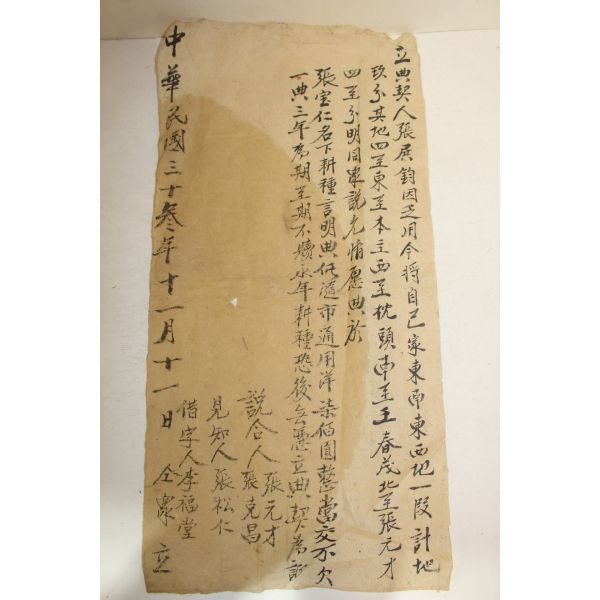 立典契人張展鈞因乏用今將自己家東南東西地一段計地
玖分其地四至東至本主西至枕頭南至王春茂北至張元才
四至分明同眾說允情愿典於
張宝仁名下耕種言明典价道市通用洋柒佰圓整當交不欠
一典三年為期至期不贖永年耕種恐後無憑立典契為証
說合人張元才
張克昌
見知人張松仁
借字人李福堂
中華民國三十叁年十一月十一日 仝眾立